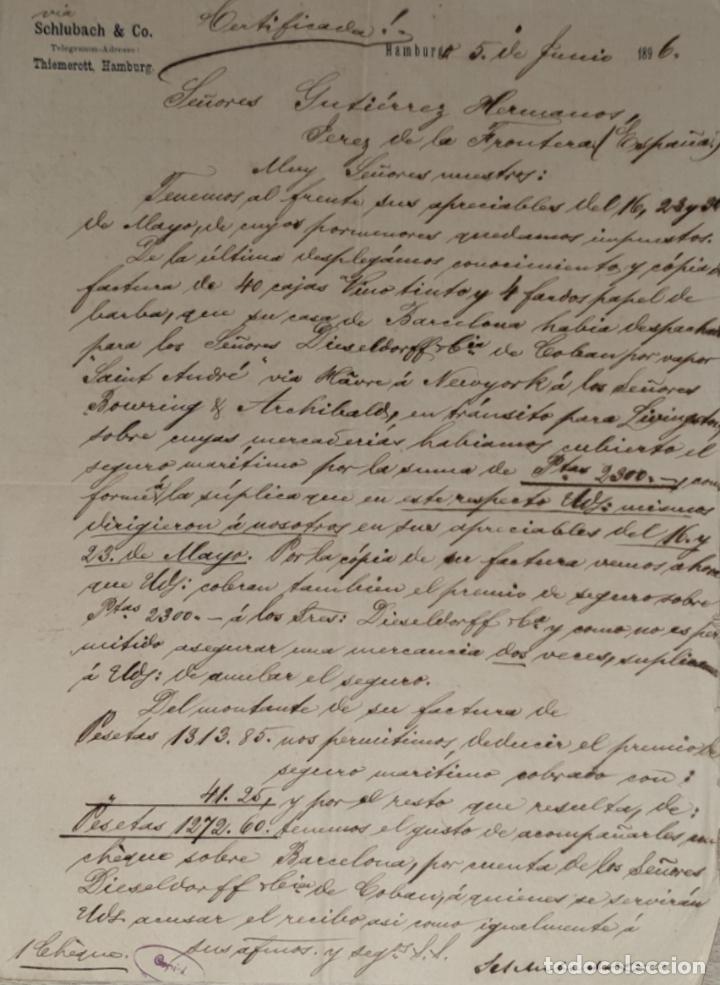 via
Schlubach & Co.
Telegramm-Adresse:
Thiemerott, Hamburg.
Certificada!
Hamburg 5. de Junio 1896.
Señores Gutiérrez Hermanos,
Jerez de la Frontera (España.)
Muy Señores nuestros:
Tenemos al frente sus apreciables del 16, 23 y 30
de Mayo, de cuyos pormenores quedamos impuestos.
De la última desplegámos conocimiento, y cópia de
factura de 40 cajas Vino tinto y 4 fardos papel de
barba, que su casa de Barcelona habia despachado
para los Señores Dieseldorff & Cia de Coban por vapor
"Saint André" via Hâvre á Newyork á los Señores
Bowring & Archibald, en tránsito para Livingston,
sobre cuyas mercaderiás habiamos cubierto el
seguro marítimo por la suma de Ptas 2300.-, con
forme á la súplica que en este respecto Uds: mismos
dirigieron á nosotros en sus apreciables del 16. y
23. de Mayo. Por la cópia de su factura vemos ahora
que Uds: cobran tambien el premio de seguro sobre
Ptas 2300.- á los Sres: Dieseldorff & Ca y como no es per
mitido asegurar una mercancia dos veces, suplicamos
á Uds: de anular el seguro.
Del montante de su factura de
Pesetas 1313.85. nos permitimos, deducir el premio de
seguro marítimo cobrado con:
" 41.25, y por el resto que resulta, de:
Pesetas 1272.60. tenemos el gusto de acompañarles un
chèque sobre Barcelona, por cuenta de los Señores
Dieseldorff & Cia de Coban, á quienes se servirán
Uds. acusar el recibo asi como igualmente á
sus afmos. y segos S.S.
1 Chèque.
todocoleccion.net